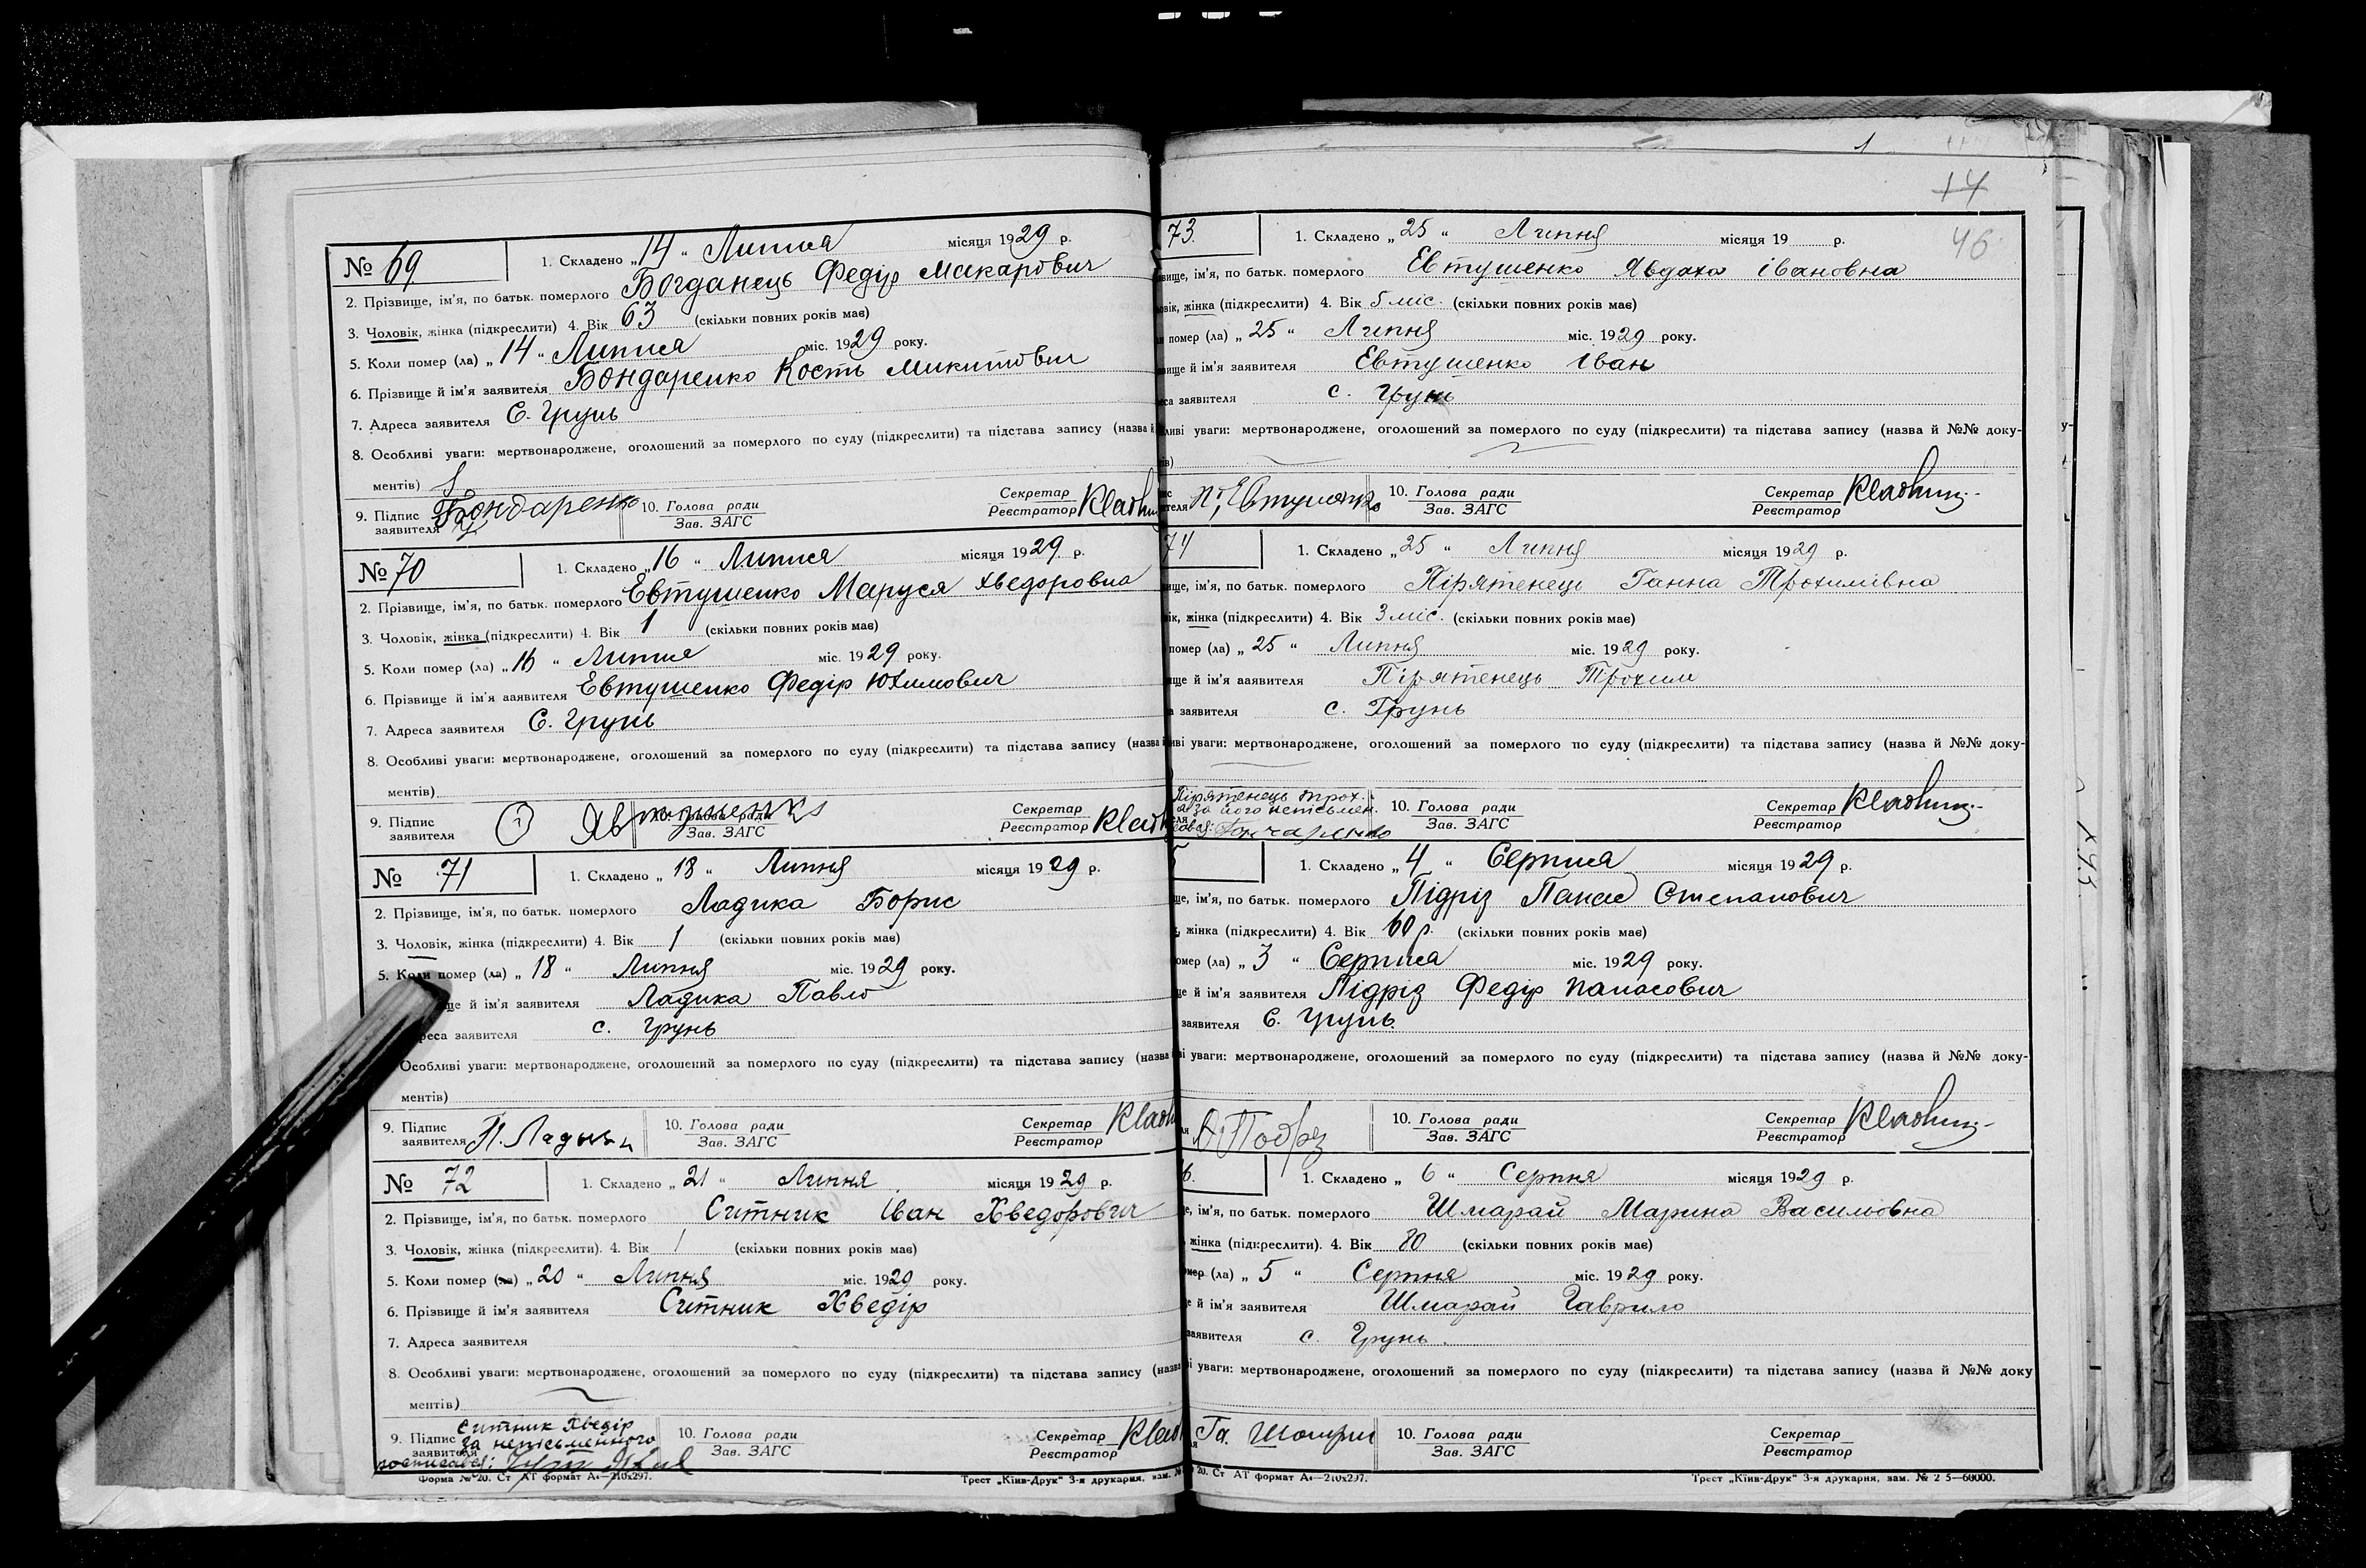 № 69
1. Складено „14“ Липня місяця 1929 р.
2. Прізвище, ім'я, по батьк. померлого Богданець Федір Макарович
3. Чоловік, жінка (підкреслити) 4. Вік 63 (скільки повних років має)
5. Коли помер (ла) „14“ Липня міс. 1929 року.
6. Прізвище й ім'я заявителя Бондаренко Кость Микитович
7. Адреса заявителя С. Грунь
8. Особливі уваги: мертвонароджене, оголошений за померлого по суду (підкреслити) та підстава запису (назва й
ментів)
9. Підпис заявителя Бондаренко 10. Голова ради Зав. ЗАГС Секретар Реєстратор
№ 70
1. Складено „16“ Липня місяця 1929 р.
2. Прізвище, ім'я, по батьк. померлого Евтушенко Маруся Хведоровна
3. Чоловік, жінка (підкреслити) 4. Вік 1 (скільки повних років має)
5. Коли помер (ла) „16“ Липня міс. 1929 року.
6. Прізвище й ім'я заявителя Евтушенко Федір Юхимович
7. Адреса заявителя С. Грунь
8. Особливі уваги: мертвонароджене, оголошений за померлого по суду (підкреслити) та підстава запису (назва й
ментів)
9. Підпис заявителя Явтушенко 10. Голова ради Зав. ЗАГС Секретар Реєстратор
№ 71
1. Складено „18“ Липня місяця 1929 р.
2. Прізвище, ім'я, по батьк. померлого Ладика Борис
3. Чоловік, жінка (підкреслити) 4. Вік 1 (скільки повних років має)
5. Коли помер (ла) „18“ Липня міс. 1929 року.
ще й ім'я заявителя Ладика Павло
реса заявителя с. Грунь
Особливі уваги: мертвонароджене, оголошений за померлого по суду (підкреслити) та підстава запису (назва
ментів)
9. Підпис заявителя П. Ладыка 10. Голова ради Зав. ЗАГС Секретар Реєстратор
№ 72
1. Складено „21“ Липня місяця 1929 р.
2. Прізвище, ім'я, по батьк. померлого Ситник Іван Хведорович
3. Чоловік, жінка (підкреслити). 4. Вік 1 (скільки повних років має)
5. Коли помер (ла) „20“ Липня міс. 1929 року.
6. Прізвище й ім'я заявителя Ситник Хведір
7. Адреса заявителя
8. Особливі уваги: мертвонароджене, оголошений за померлого по суду (підкреслити) та підстава запису (назва
ментів)
9. Підпис заявителя Ситник Хведір за неписьменного росписався: 10. Голова ради Зав. ЗАГС Секретар Реєстратор
Форма № 20. Ст АТ формат А4—210х297. Трест „Київ-Друк“ 3-я друкарня, зам. №
1
14
46
73.
1. Складено „25“ Липня місяця 19 р.
вище, ім'я, по батьк. померлого Евтушенко Явдаха Івановна
овік, жінка (підкреслити) 4. Вік 5 міс. (скільки повних років має)
помер (ла) „25“ Липня міс. 1929 року.
вище й ім'я заявителя Евтушенко Іван
са заявителя с. Грунь
ливі уваги: мертвонароджене, оголошений за померлого по суду (підкреслити) та підстава запису (назва й №№ доку-
ів)
Евтушенко 10. Голова ради Зав. ЗАГС Секретар Реєстратор
74
1. Складено „25“ Липня місяця 1929 р.
ище, ім'я, по батьк. померлого Пірятенець Ганна Трохимівна
ік, жінка (підкреслити) 4. Вік 3 міс. (скільки повних років має)
помер (ла) „25“ Липня міс. 1929 року.
ище й ім'я заявителя Пірятенець Трохим
а заявителя с. Грунь
иві уваги: мертвонароджене, оголошений за померлого по суду (підкреслити) та підстава запису (назва й №№ доку-
)
Пірятенець Трох. а за його неписьмен. Гончаренко 10. Голова ради Зав. ЗАГС Секретар Реєстратор
5
1. Складено „4“ Серпня місяця 1929 р.
ще, ім'я, по батьк. померлого Підріз Панас Степанович
, жінка (підкреслити) 4. Вік 60 р. (скільки повних років має)
омер (ла) „3“ Серпня міс. 1929 року.
ще й ім'я заявителя Підріз Федір Панасович
заявителя С. Грунь
ві уваги: мертвонароджене, оголошений за померлого по суду (підкреслити) та підстава запису (назва й №№ доку-
10. Голова ради Зав. ЗАГС Секретар Реєстратор
6.
1. Складено „6“ Серпня місяця 1929 р.
е, ім'я, по батьк. померлого Шмарай Марина Василовна
жінка (підкреслити). 4. Вік 80 (скільки повних років має)
мер (ла) „5“ Серпня міс. 1929 року.
е й ім'я заявителя Шмарай Гаврило
заявителя с. Грунь.
і уваги: мертвонароджене, оголошений за померлого по суду (підкреслити) та підстава запису (назва й №№ доку
Га. 10. Голова ради Зав. ЗАГС Секретар Реєстратор
20. Ст АТ формат А4—210х297. Трест „Київ-Друк“ 3-я друкарня, зам. № 2 5—60000.